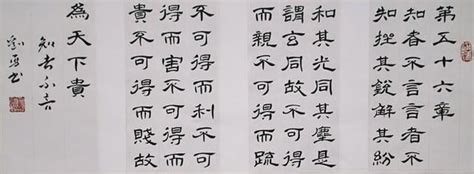 第五十六章
知者不言言者不
知挫其銳解其紛
和其光同其塵是
謂玄同故不可得
而親不可得而疏
不可得而利不可
得而害不可得而
貴不可得而賤故
為天下貴
知者不言
書